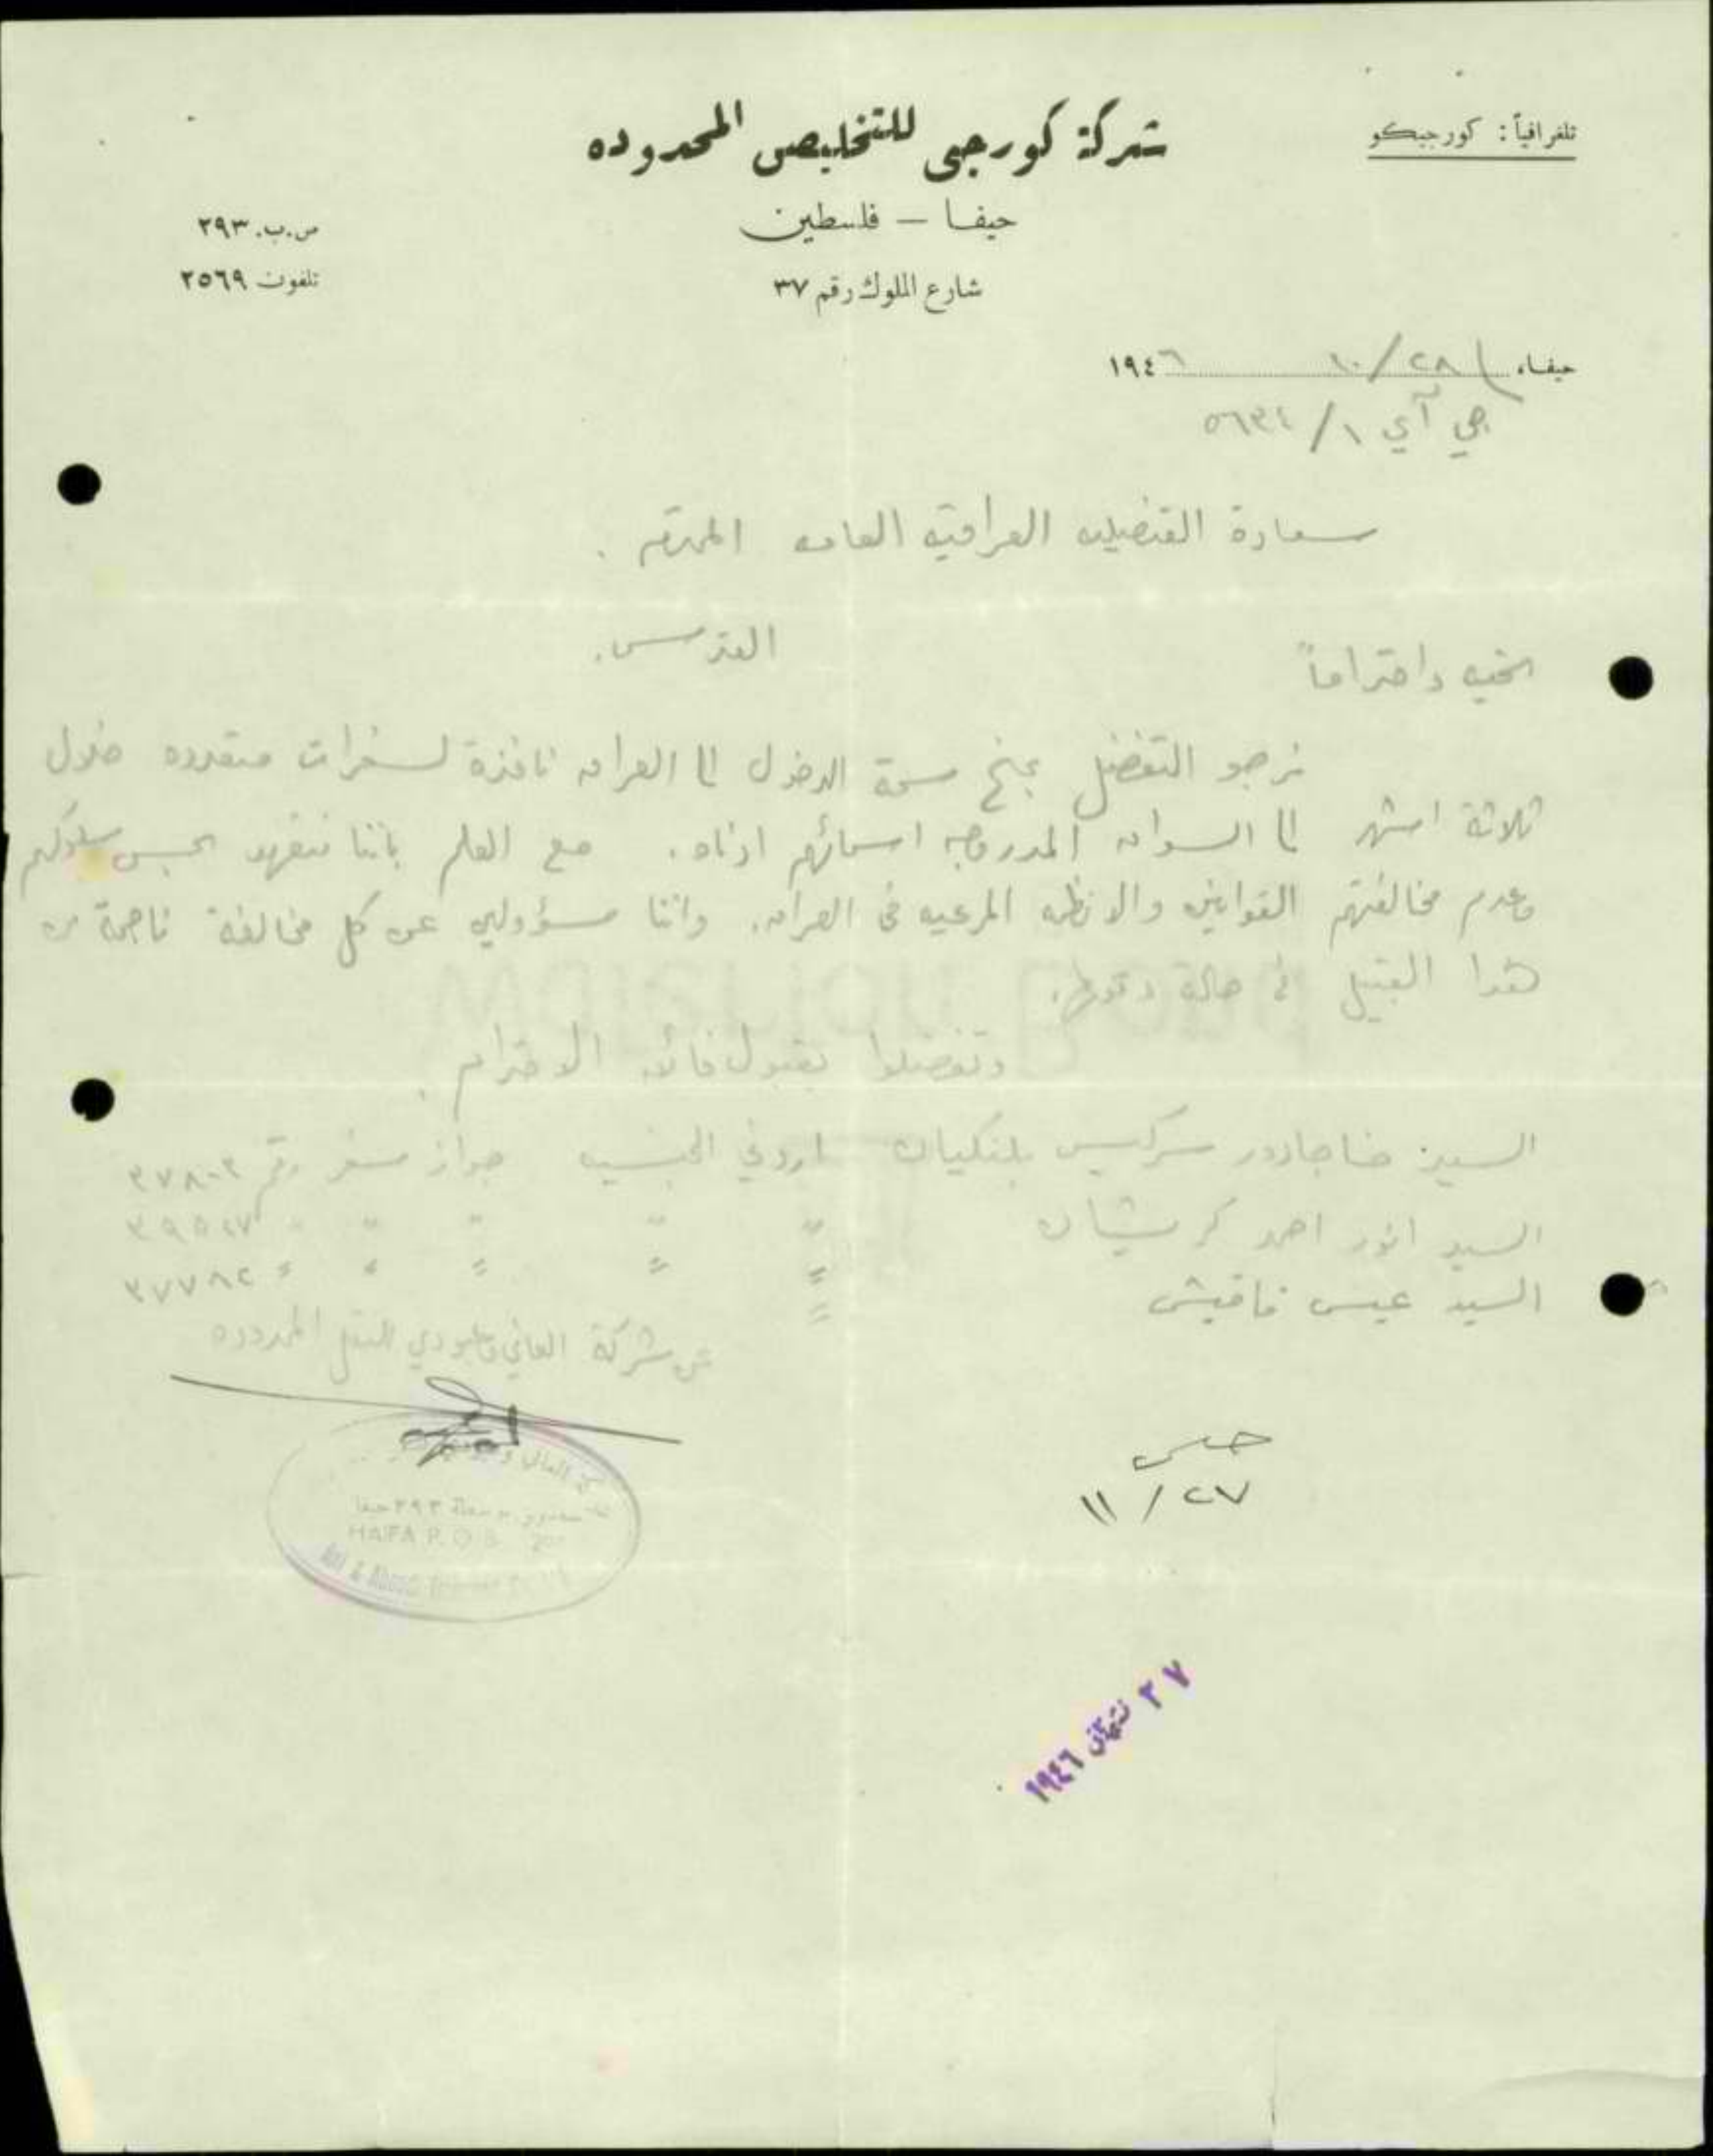 تلغرافياً: كورجيكو
شركة كورجي للتخليص المحدوده
حيفا — فلسطين
شارع الملوك رقم ٣٧
ص.ب. ٢٩٣
تلفون ٢٥٦٩
حيفاء ٢٨/١٠ ١٩٤٦
جي آي ١/ ٥٦٣٤
سعادة القنصليه العراقيه العامه المحترم .
القدس.
تحيه واحتراماً
نرجو التفضل بمنح سمة الدخول الى العراق نافذة لسفرات متعدده خلال
ثلاثة اشهر الى السواق المدروجه اسمائهم ادناه . مع العلم باننا نتعهد بحسن سلوكهم
وعدم مخالفتهم القوانين والانظمه المرعيه في العراق. واننا مسؤولين عن كل مخالفة ناجمة من
هذا القبيل في حالة وقوعها.
وتفضلوا بقبول فائق الاحترام .
السيد خاجادور سركيس بلنكيان اردني الجنسيه جواز سفر رقم ٣٧٨٠٢
السيد انور احمد كريشان " " " " " ٣٩٥٤٧
السيد عيسى قاقيش " " " " " ٣٧٧٨٢
عن شركة العاني وعبودي للنقل المحدوده
٢٧ / ١١
صندوق بوستة ٢٩٣ حيفا
HAIFA P. O. B.
٢٧ ١٩٤٦